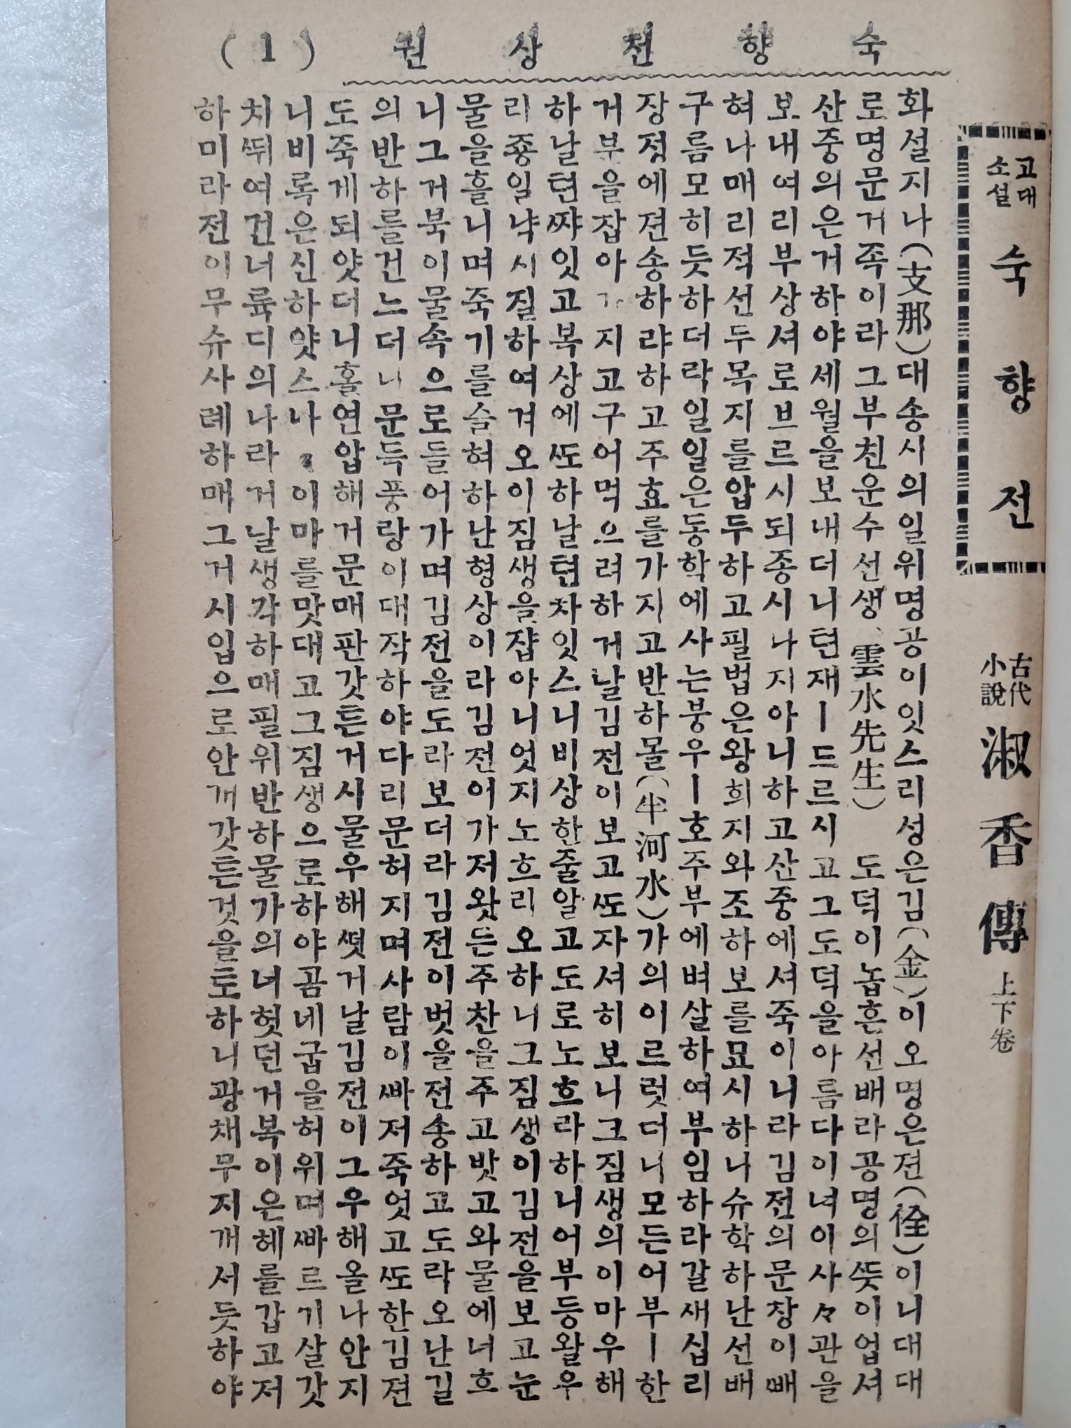 숙향전상권 (1)
고대
소설
숙향전
古代
小說
淑香傳 上下卷
화설지나(支那)대송시의일위명공이잇스리성은김(金)이오명은젼(佺)이니대대
로명문거족이라그부친운수선생(雲水先生) 도덕이놉흔선배라공명의뜻이업셔
산중의은거하야세월을보내더니텬재ㅣ드르시고그도덕을아름다이녀이사々관을
보내여리부상셔로브르시되종시나지아니하고산중에셔죽이니라김젼의문장이빼
혀나매리적선두목지를압두하고필법은왕희지와조하보를묘시하니슈학하난선배
구름모히듯하더라일일은동학에사는붕우ㅣ호주부에벼살하여부임하라갈새십리
장졍에젼송하랴하고주효를가지고반하물(半河水)가의이르럿더니모든어부ㅣ한
거부을잡아가지고구어먹으려하거날김전이보고또자셔히보니그짐생의이마우해
하날텬짜잇고복상에또하날텬자잇스니비상한줄알고도로노흐라하니어부등왈우
리죵일낙시질하여겨오이짐생을쟙아니엇지노흐리오하니그짐생이김전을보고눈
물을흘니며죽기를슬혀하난형상이라김전이가저왓든주찬을주고밧고와물에너흐
니그거북이물속으로들어가며김전을도라보더라김전이벗을전송하고도라오난길
의반하를건느더니문득풍랑이대작하야다리문허지며사람이빠저죽엇고또한김젼
도죽게되얏더니홀연압해거문매판갓튼거시물우해떳거날김전이그우해올나안지
니비록은신하얏스나이마를맛대고그짐생으로하야곰네굽을허위며빠르기살갓
치뛰여건너륙디의나라거날생각하매필위반하물가의녀헛던거복이은혜를갑고저
하미라전이무슈사례하매그거시입으로안개갓튼것을토하니광채무지개서듯하야